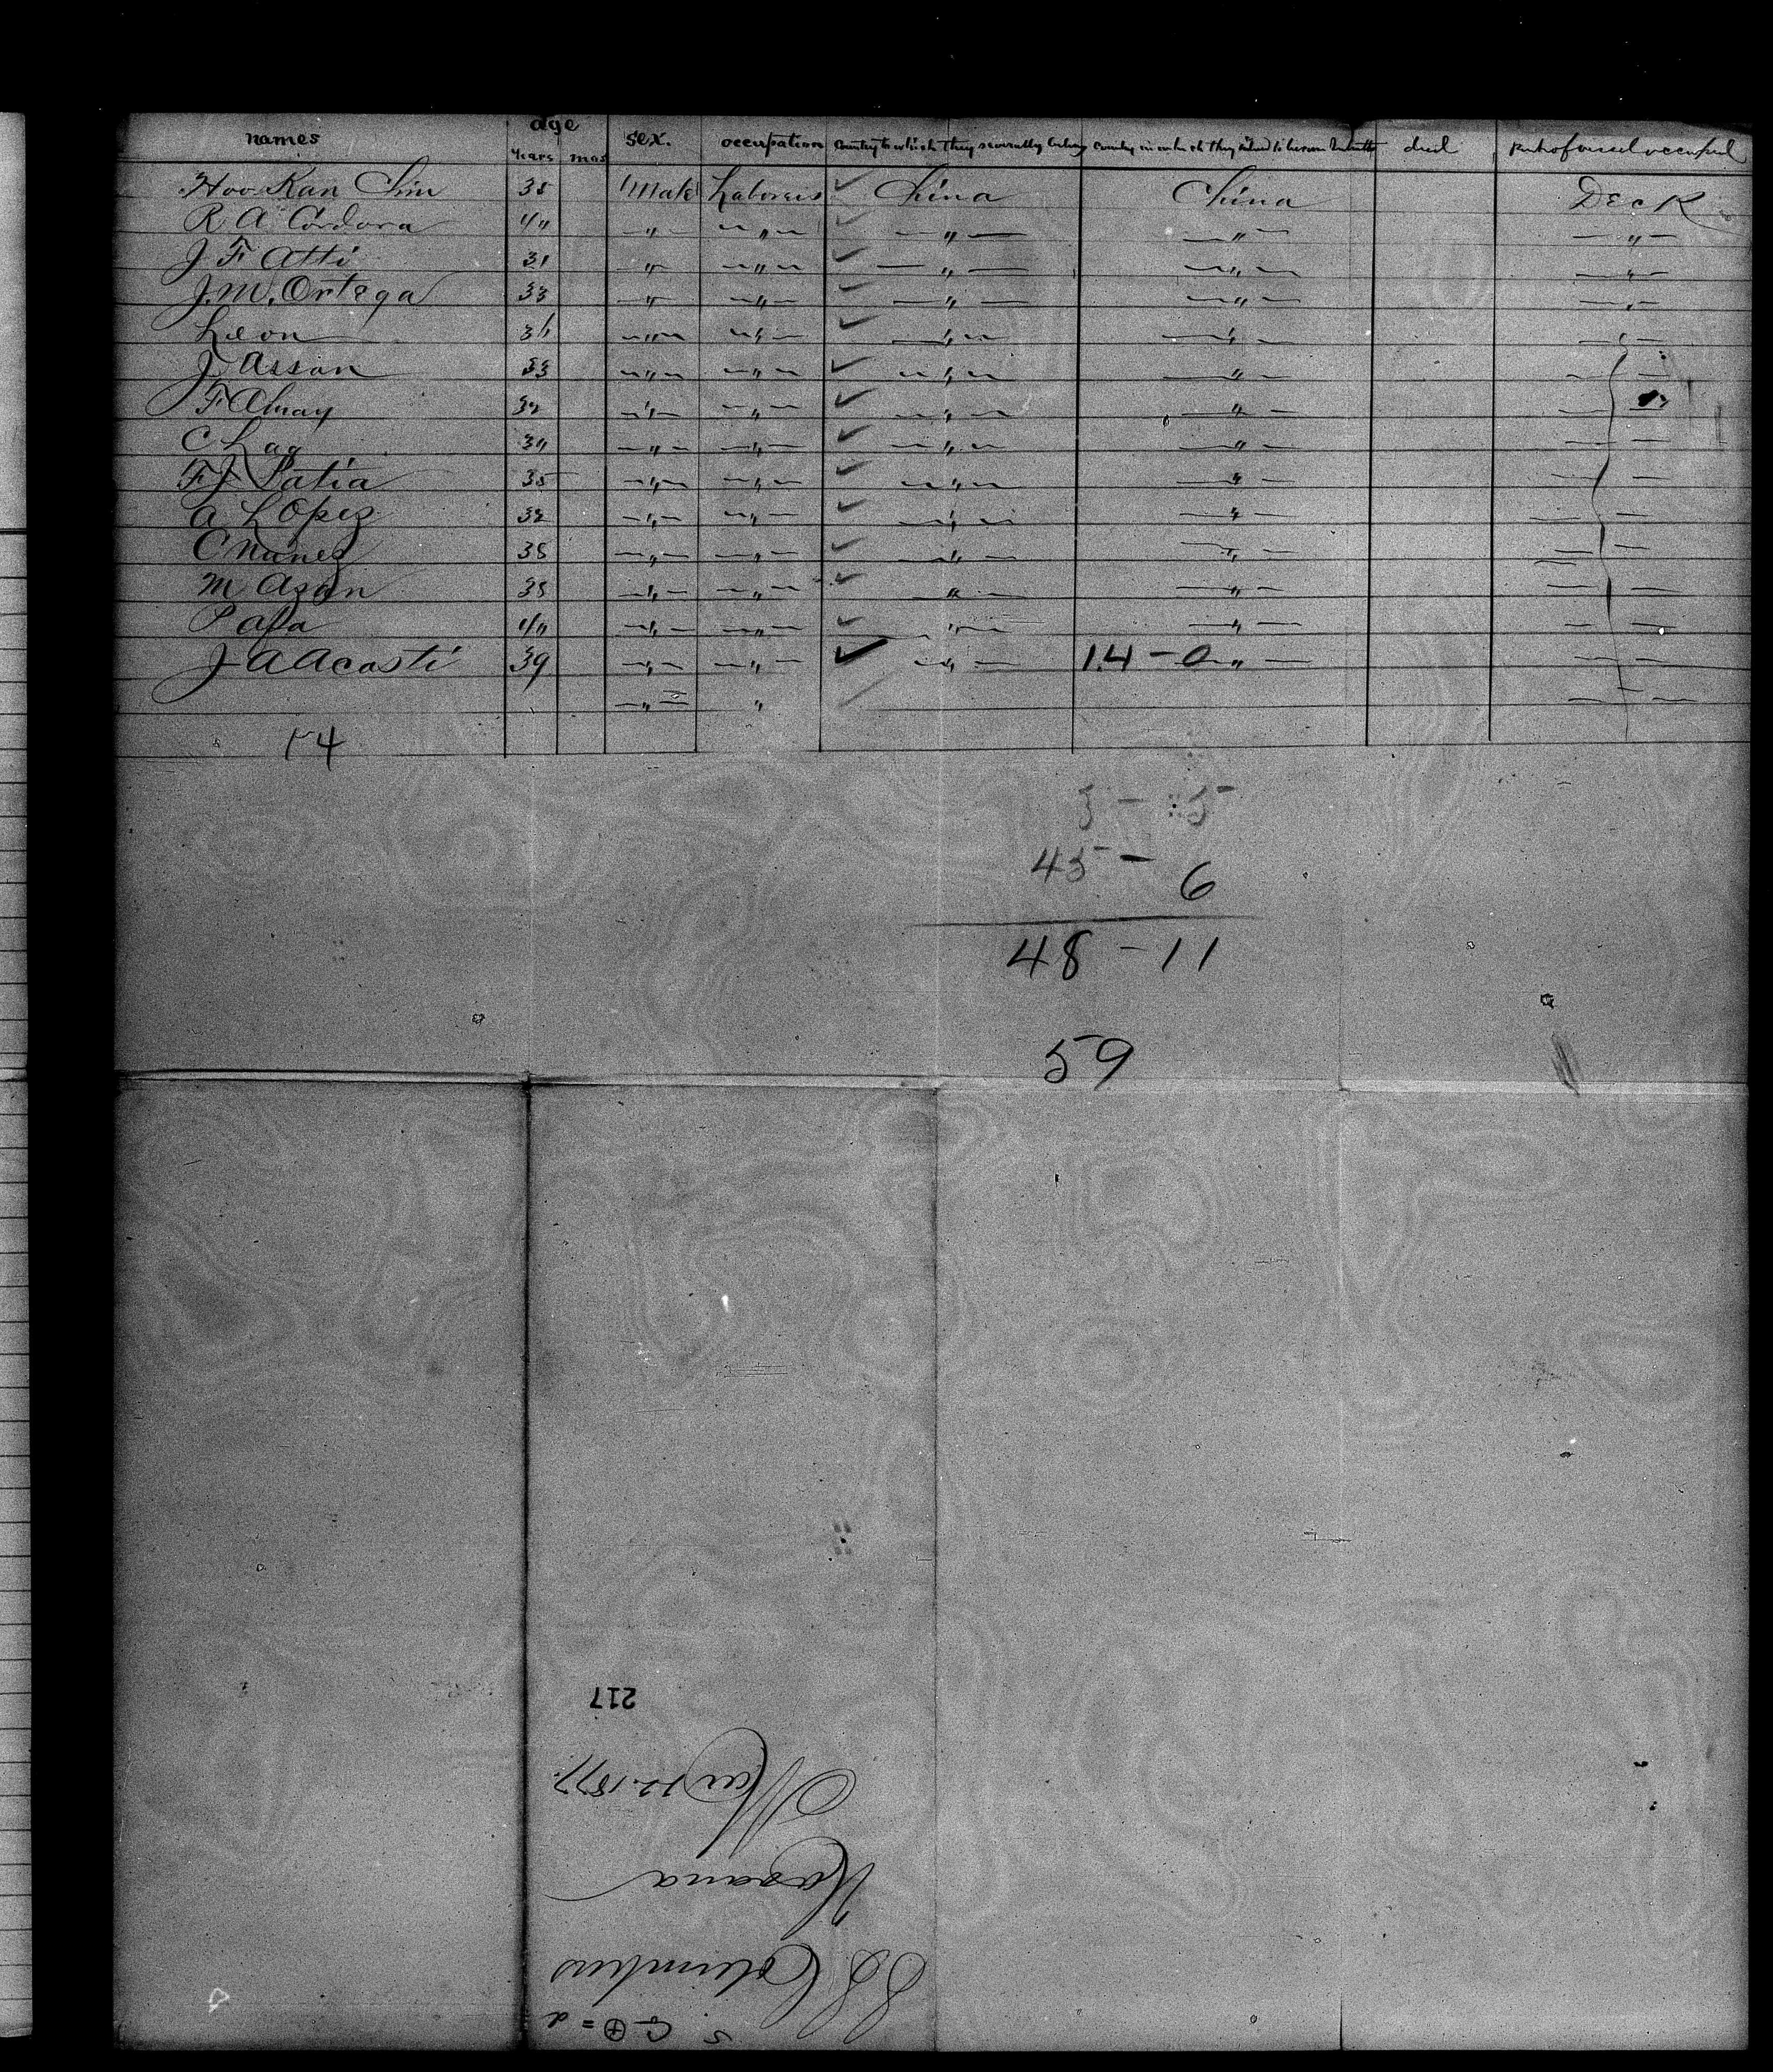 names age sex. occupation country to which they severally belong country in which they intend to become inhabitants died part of vessel occupied
Years mos
Hoo Kan Chin 38 Male Laborers ✓ China China Deck
R A Cordova 40 " " ✓ " " "
J F Atti 31 " " ✓ " " "
J. M. Ortega 33 " " ✓ " " "
Leon 36 " " ✓ " "
J Assan 33 " " ✓ " "
F Almay 32 " " ✓ " "
C Lag 30 " " ✓ " "
F J Patia 35 " " ✓ " "
A Lopez 32 " " ✓ " "
C Nunez 35 " " ✓ " "
M Asan 38 " " ✓ " "
P Apa 40 " " ✓ " "
J A Acosti 39 " " ✓ " 14 - 0 "
" "
14
3 - 5
45 - 6
48 - 11
59
S. G ⊕ = d
SS Columbus
Havana
Mar 12. 1877.
217